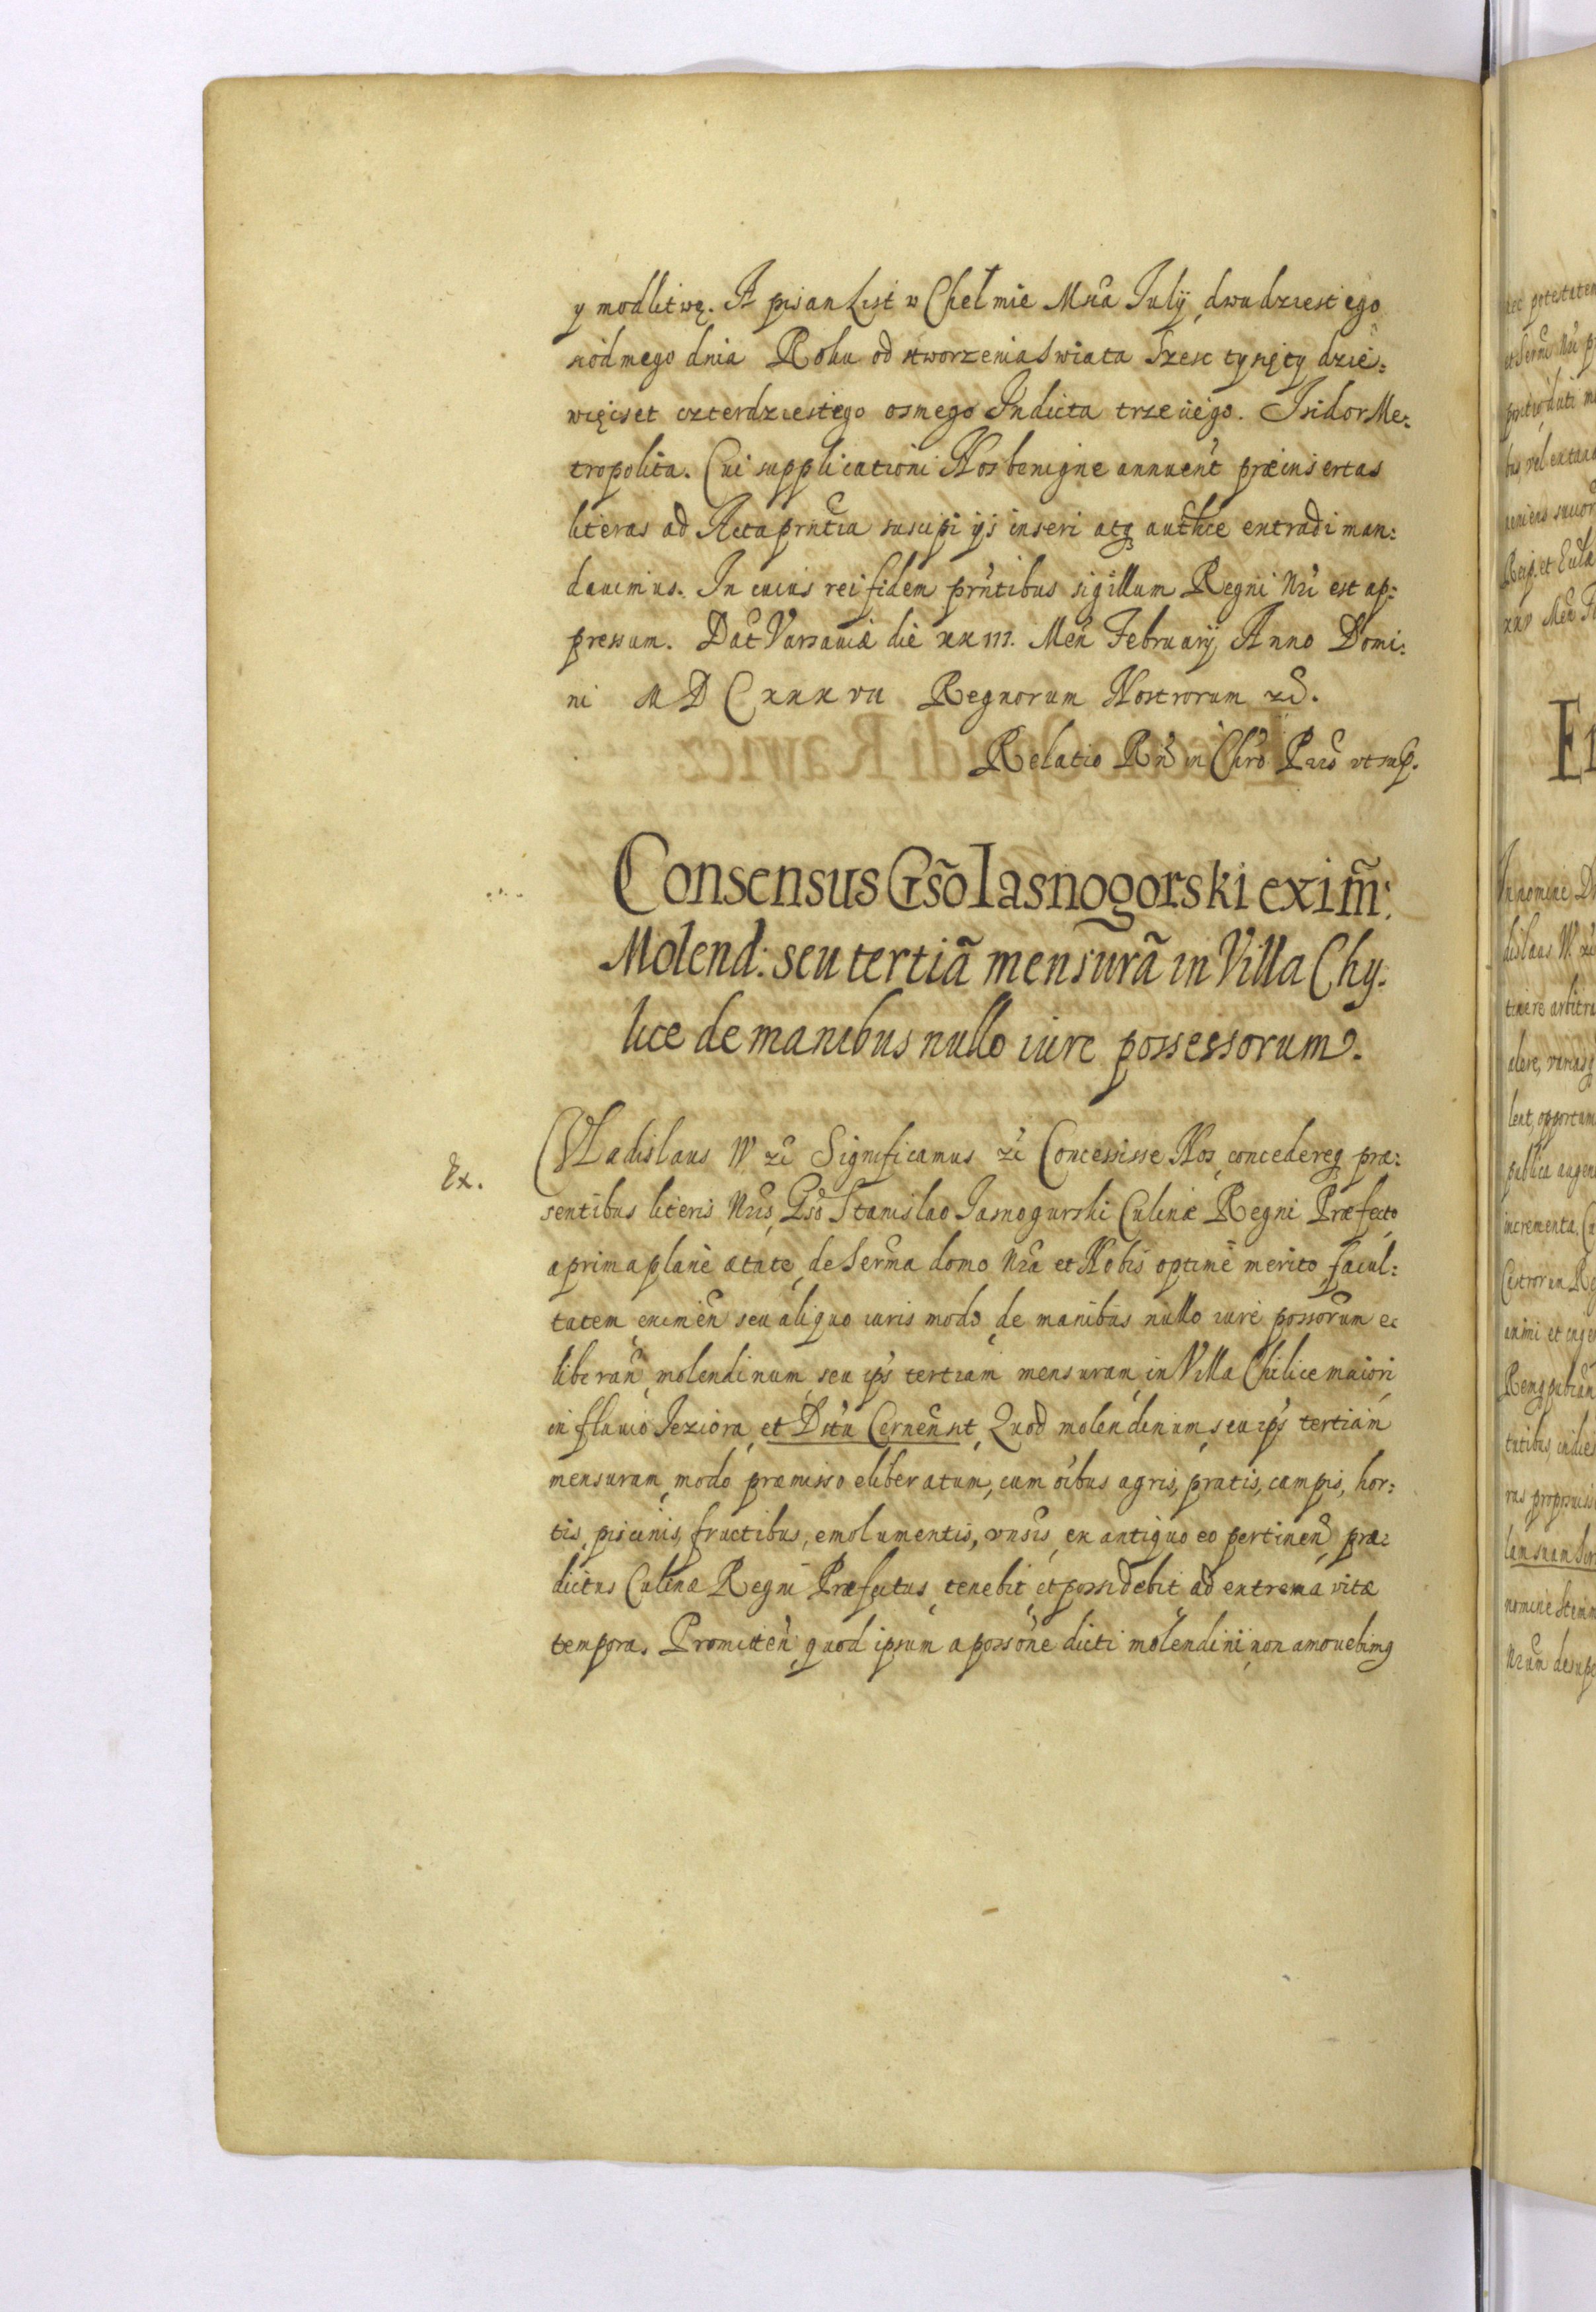 y modlitwę. A pisan List w Chełmie Mca July, dwudziestego
siódmego dnia Roku od stworzenia Swiata Szesc tysięcy dzie:
więcset czterdziestego osmego Indicta trzeciego. Isidor Me:
tropolita. Cui supplicationi Nos benigne annuent præinsertas
literas ad Acta prntia suscipi ijs inseri atq authce extradi man:
dauimus. In cuius rei fidem prntibus sigillum Regni Nri est ap:
pressum. Dat Varsauiæ die xxiii. Men February Anno Domi:
ni MDCxxxvii Regnorum Nostrorum etc.
Relatio Rn in Chro Pris ut sup.
Consensus Gso Iasnogorski exim:
Molend: seu tertiã mensurã in Villa Chy:
lice de manibus nullo iure possessorum.
Ex.
Vladislaus IV etc Significamus etc Concessisse Nos, concedereq præ:
sentibus literis Nris, Gso Stanislao Jasnogurski Culinæ Regni Præfecto
a prima plane ætate, de Serma domo Nra et Nobis optime merito, facul:
tatem, eximen seu aliquo iuris modo, de manibus nullo iure possorum e:
liberan, molendinum, seu ips tertiam mensuram, in Villa Chilice maiori,
in fluuio Jeziora, et Ditn Cernensnt, Quod molendinum, seu ips tertiam
mensuram, modo præmisso eliberatum, cum oibus agris, pratis, campis, hor:
tis, piscinis, fructibus, emolumentis, vnsis, ex antiquo eo pertinen, præ:
dictus Culinæ Regni Præfectus, tenebit, et possidebit ad extrema vitæ
tempora. Promitten, quod ipsum a possone dicti molendini, non amouebimq